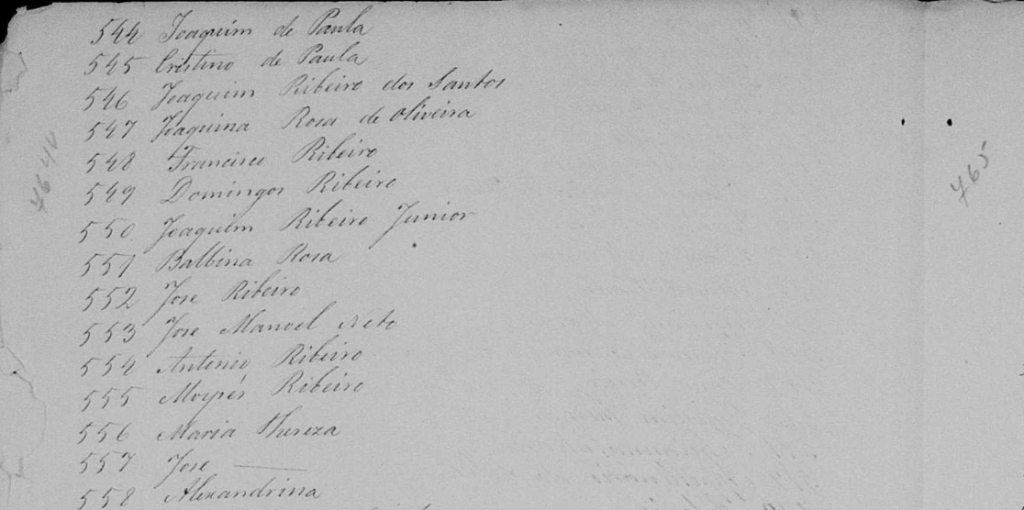 544 Joaquim de Paula
545 Cristino de Paula
546 Joaquim Ribeiro dos Santos
547 Joaquina Rosa de Oliveira
548 Francisco Ribeiro
549 Domingos Ribeiro
550 Joaquim Ribeiro Junior
551 Balbina Rosa
552 Jose Ribeiro
553 Jose Manoel Neto
554 Antonio Ribeiro
555 Moysés Ribeiro
556 Maria Thereza
557 Jose
558 Alexandrina
765